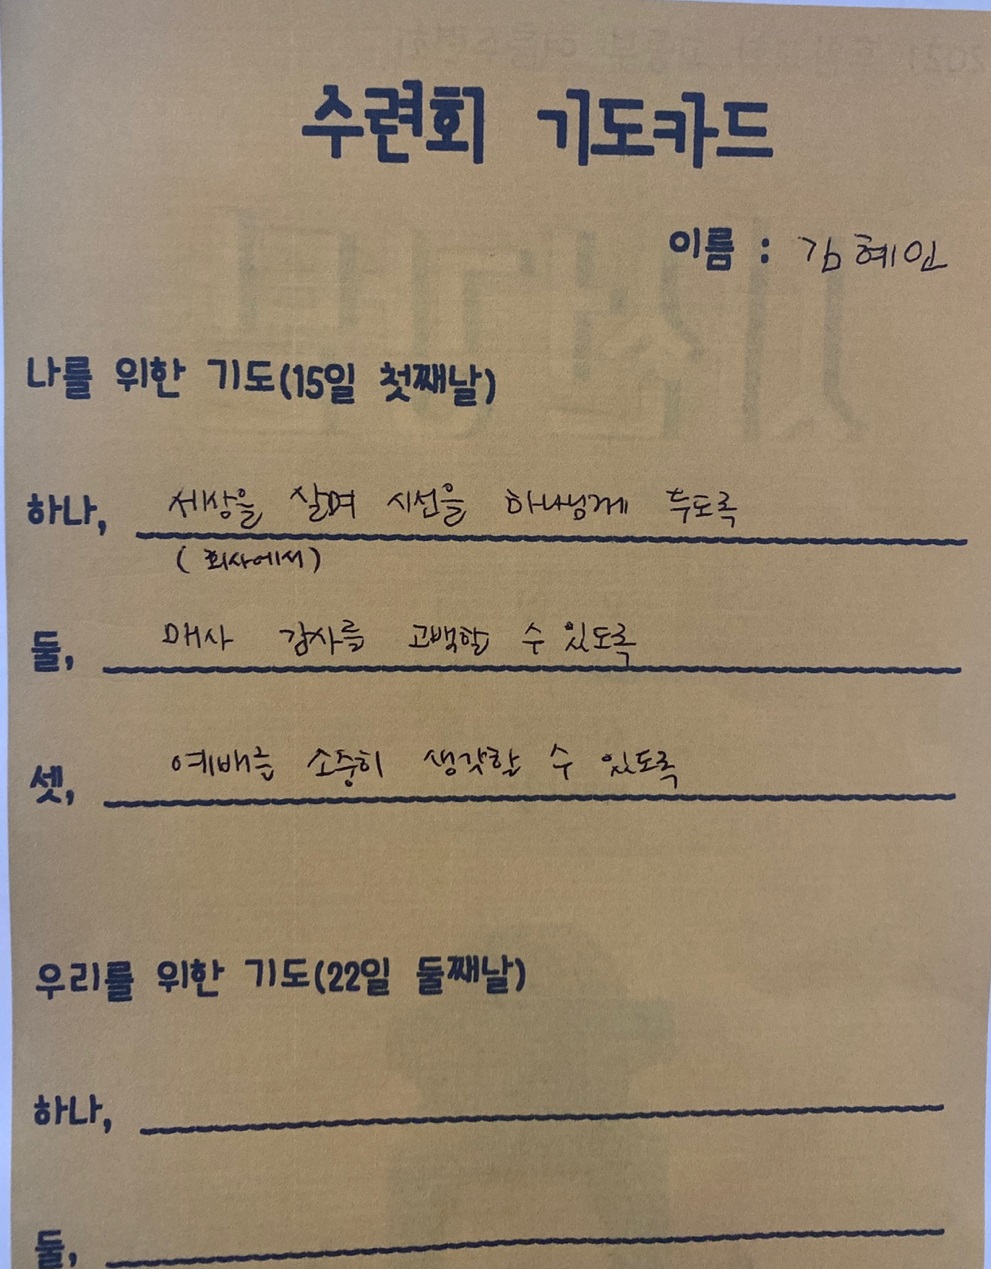 수련회 기도카드
이름 : 김혜인
나를 위한 기도(15일 첫째날)
하나, 세상을 살며 시선을 하나님께 두도록
(회사에서)
둘, 매사 감사를 고백할 수 있도록
셋, 예배를 소중히 생각할 수 있도록
우리를 위한 기도(22일 둘째날)
하나,
둘,